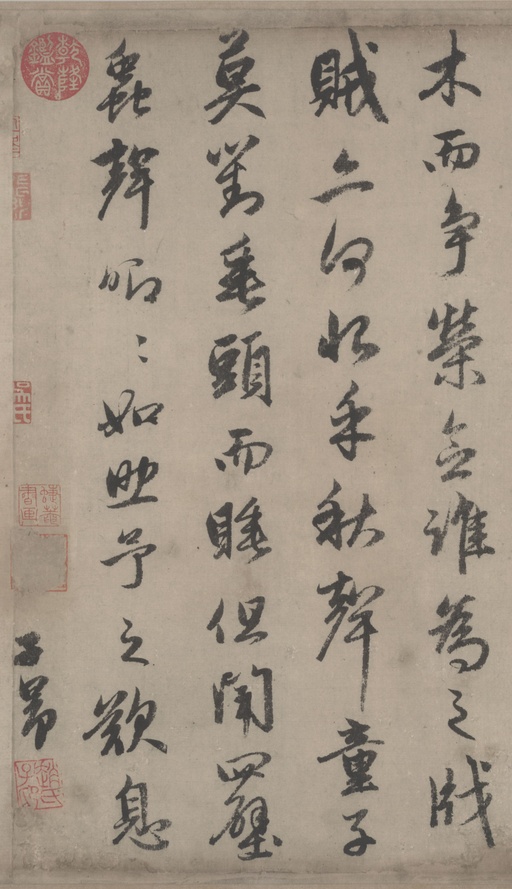 木而爭榮念誰為之戕
賊亦何恨乎秋聲童子
莫對垂頭而睡但聞四壁
蟲聲唧〻如助予之歎息
子昂
乾隆鑑賞
趙氏子昂